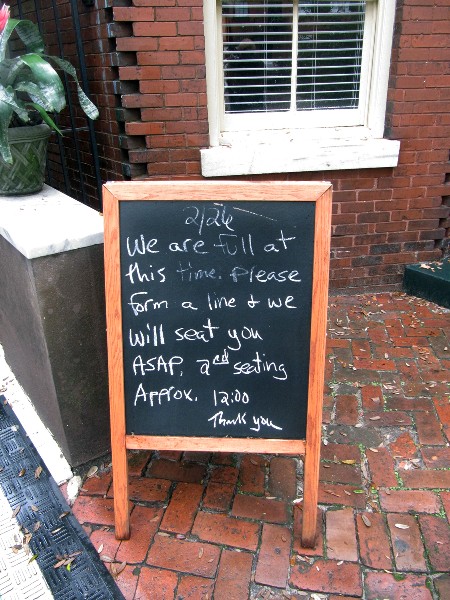 2/26
We are full at
this time. Please
form a line & we
will seat you
ASAP. 2nd seating
Approx. 12:00
Thank you